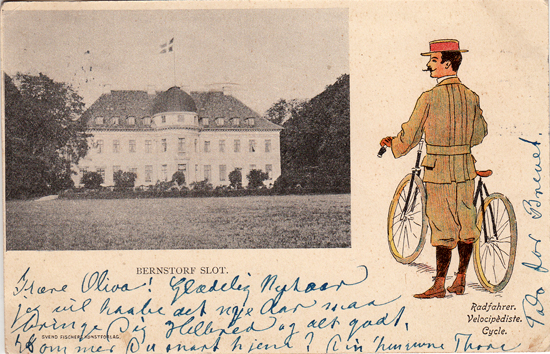 BERNSTORF SLOT.
Radfahrer.
Velocipèdiste.
Cycle.
Kære Oliva! Glædelig Nytaar
jeg vil haabe det nye Aar maa
bringe Dig Helbred og alt godt,
SVEND FISCHERS KUNSTFORLAG.
Kommer Du snart hjem? Din hengivne Thora
Tak for Brevet.